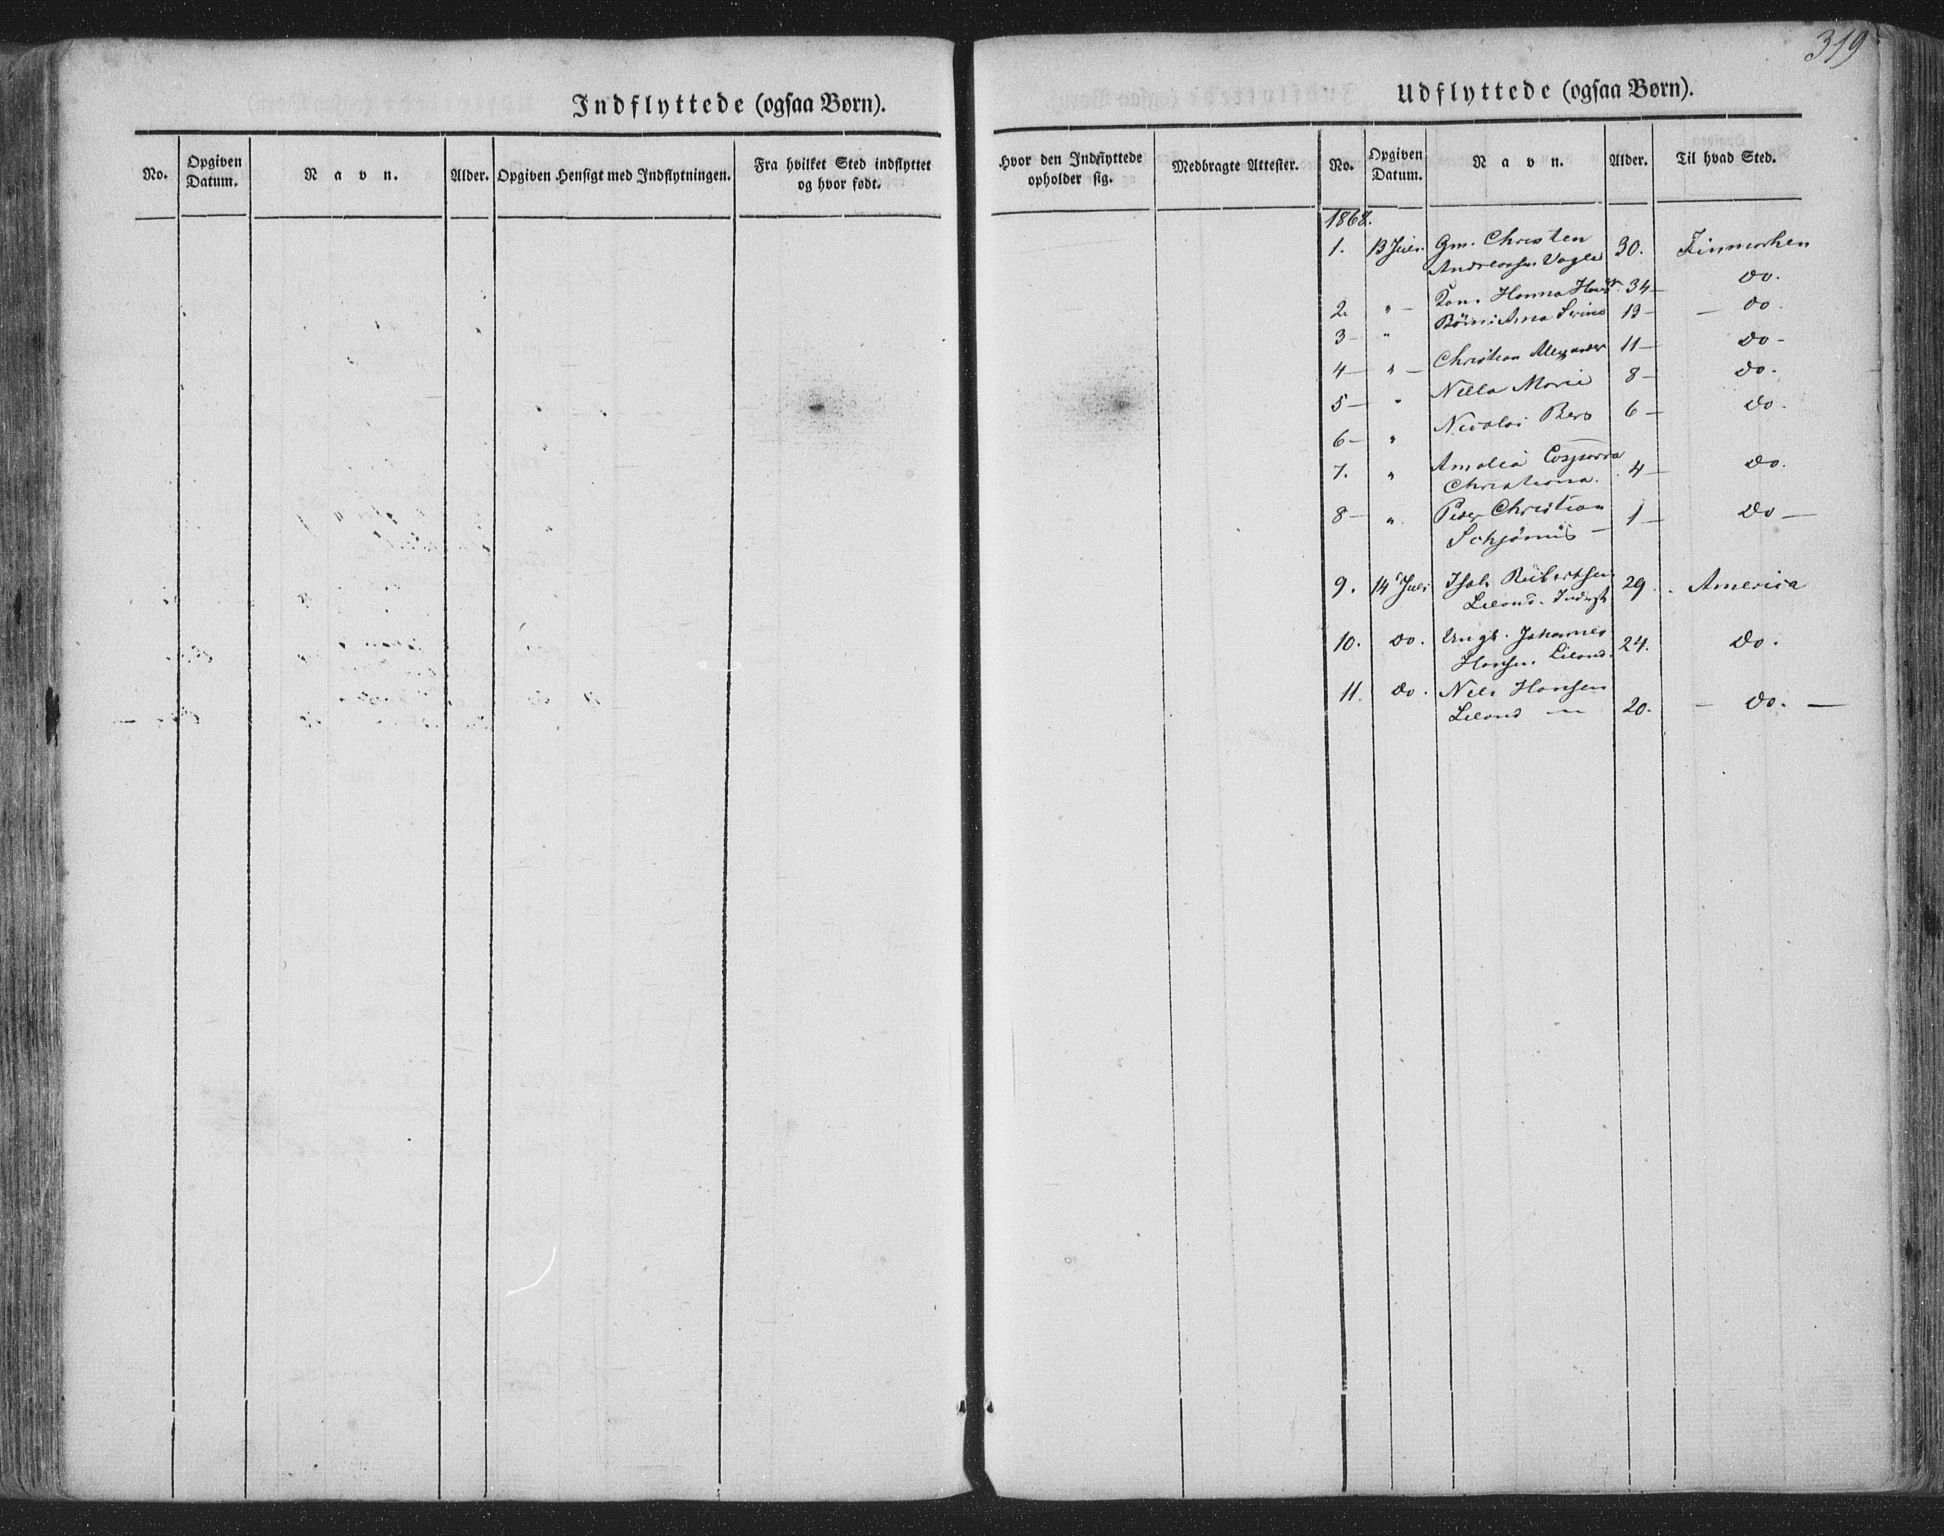 319
Indflyttede (ogsaa Børn).
No.
Opgiven Datum.
Navn.
Alder.
Opgiven Hensigt med Indflytningen.
Fra hvilket Sted indflyttet og hvor født.
Hvor den Indflyttede opholder sig.
Medbragte Attester.
Udflyttede (ogsaa Børn).
No.
Opgiven Datum.
Navn.
Alder.
Til hvad Sted.
1868.
1. 13 Juli. Gm. Christen 30. Finmarken
Andreassen Vagle
2. " – Kon. Hanna 34 – Do.
3 – " Børn: Ana 13 – – Do.
4 – " – Christian Alexander 11 – Do –
5 – " Nilla Marie 8 – Do.
6 – " Nicolai Berg 6 – Do.
7. " Amalia 4 – Do.
Christiana.
8 – " Peder Christian 1 – Do –
9. 14 Juli 29. America
10. Do. Ungk. Johannes 24. Do.
Hansen
11. Do. Nils Hansen
20. – Do. –